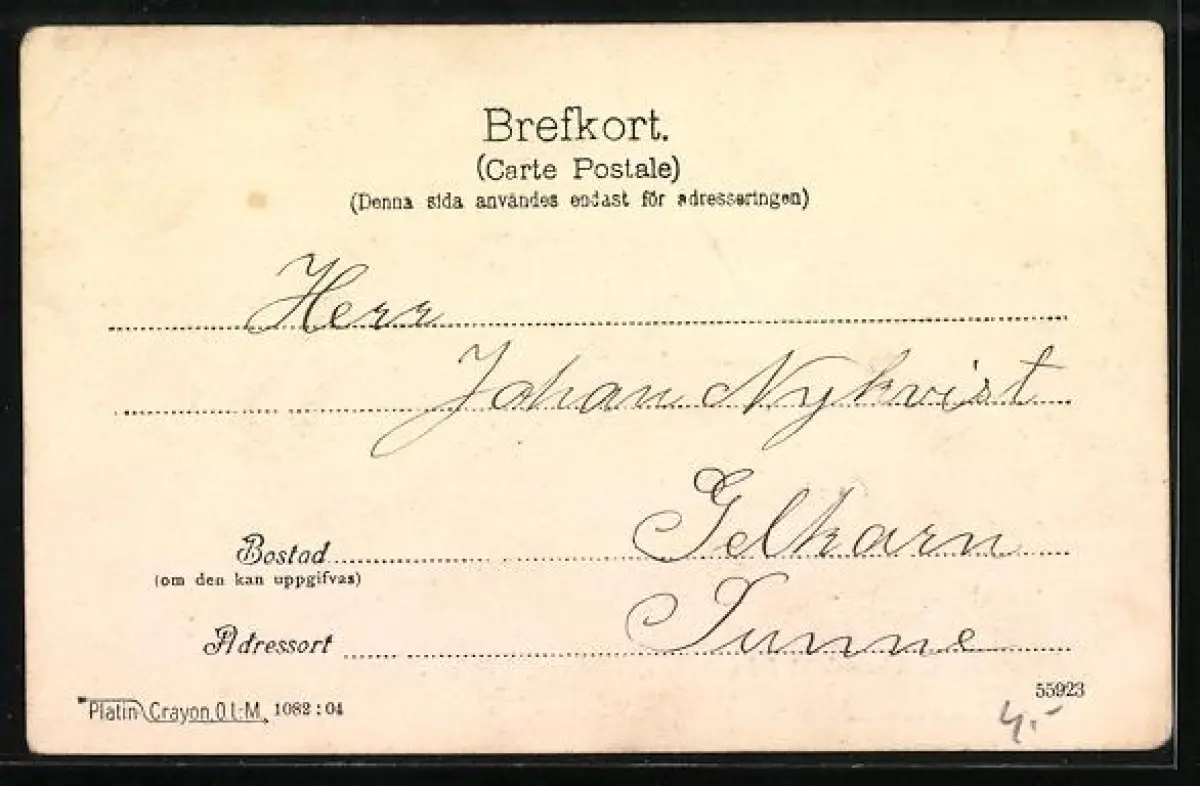 Brefkort.
(Carte Postale)
(Denna sida användes endast för adresseringen)
Herr
Johan Nykvist
Bostad Gelkarn
(om den kan uppgifvas)
Adressort Sunne
Platin Crayon, O.L.-M. 1082:04
55923
4.-